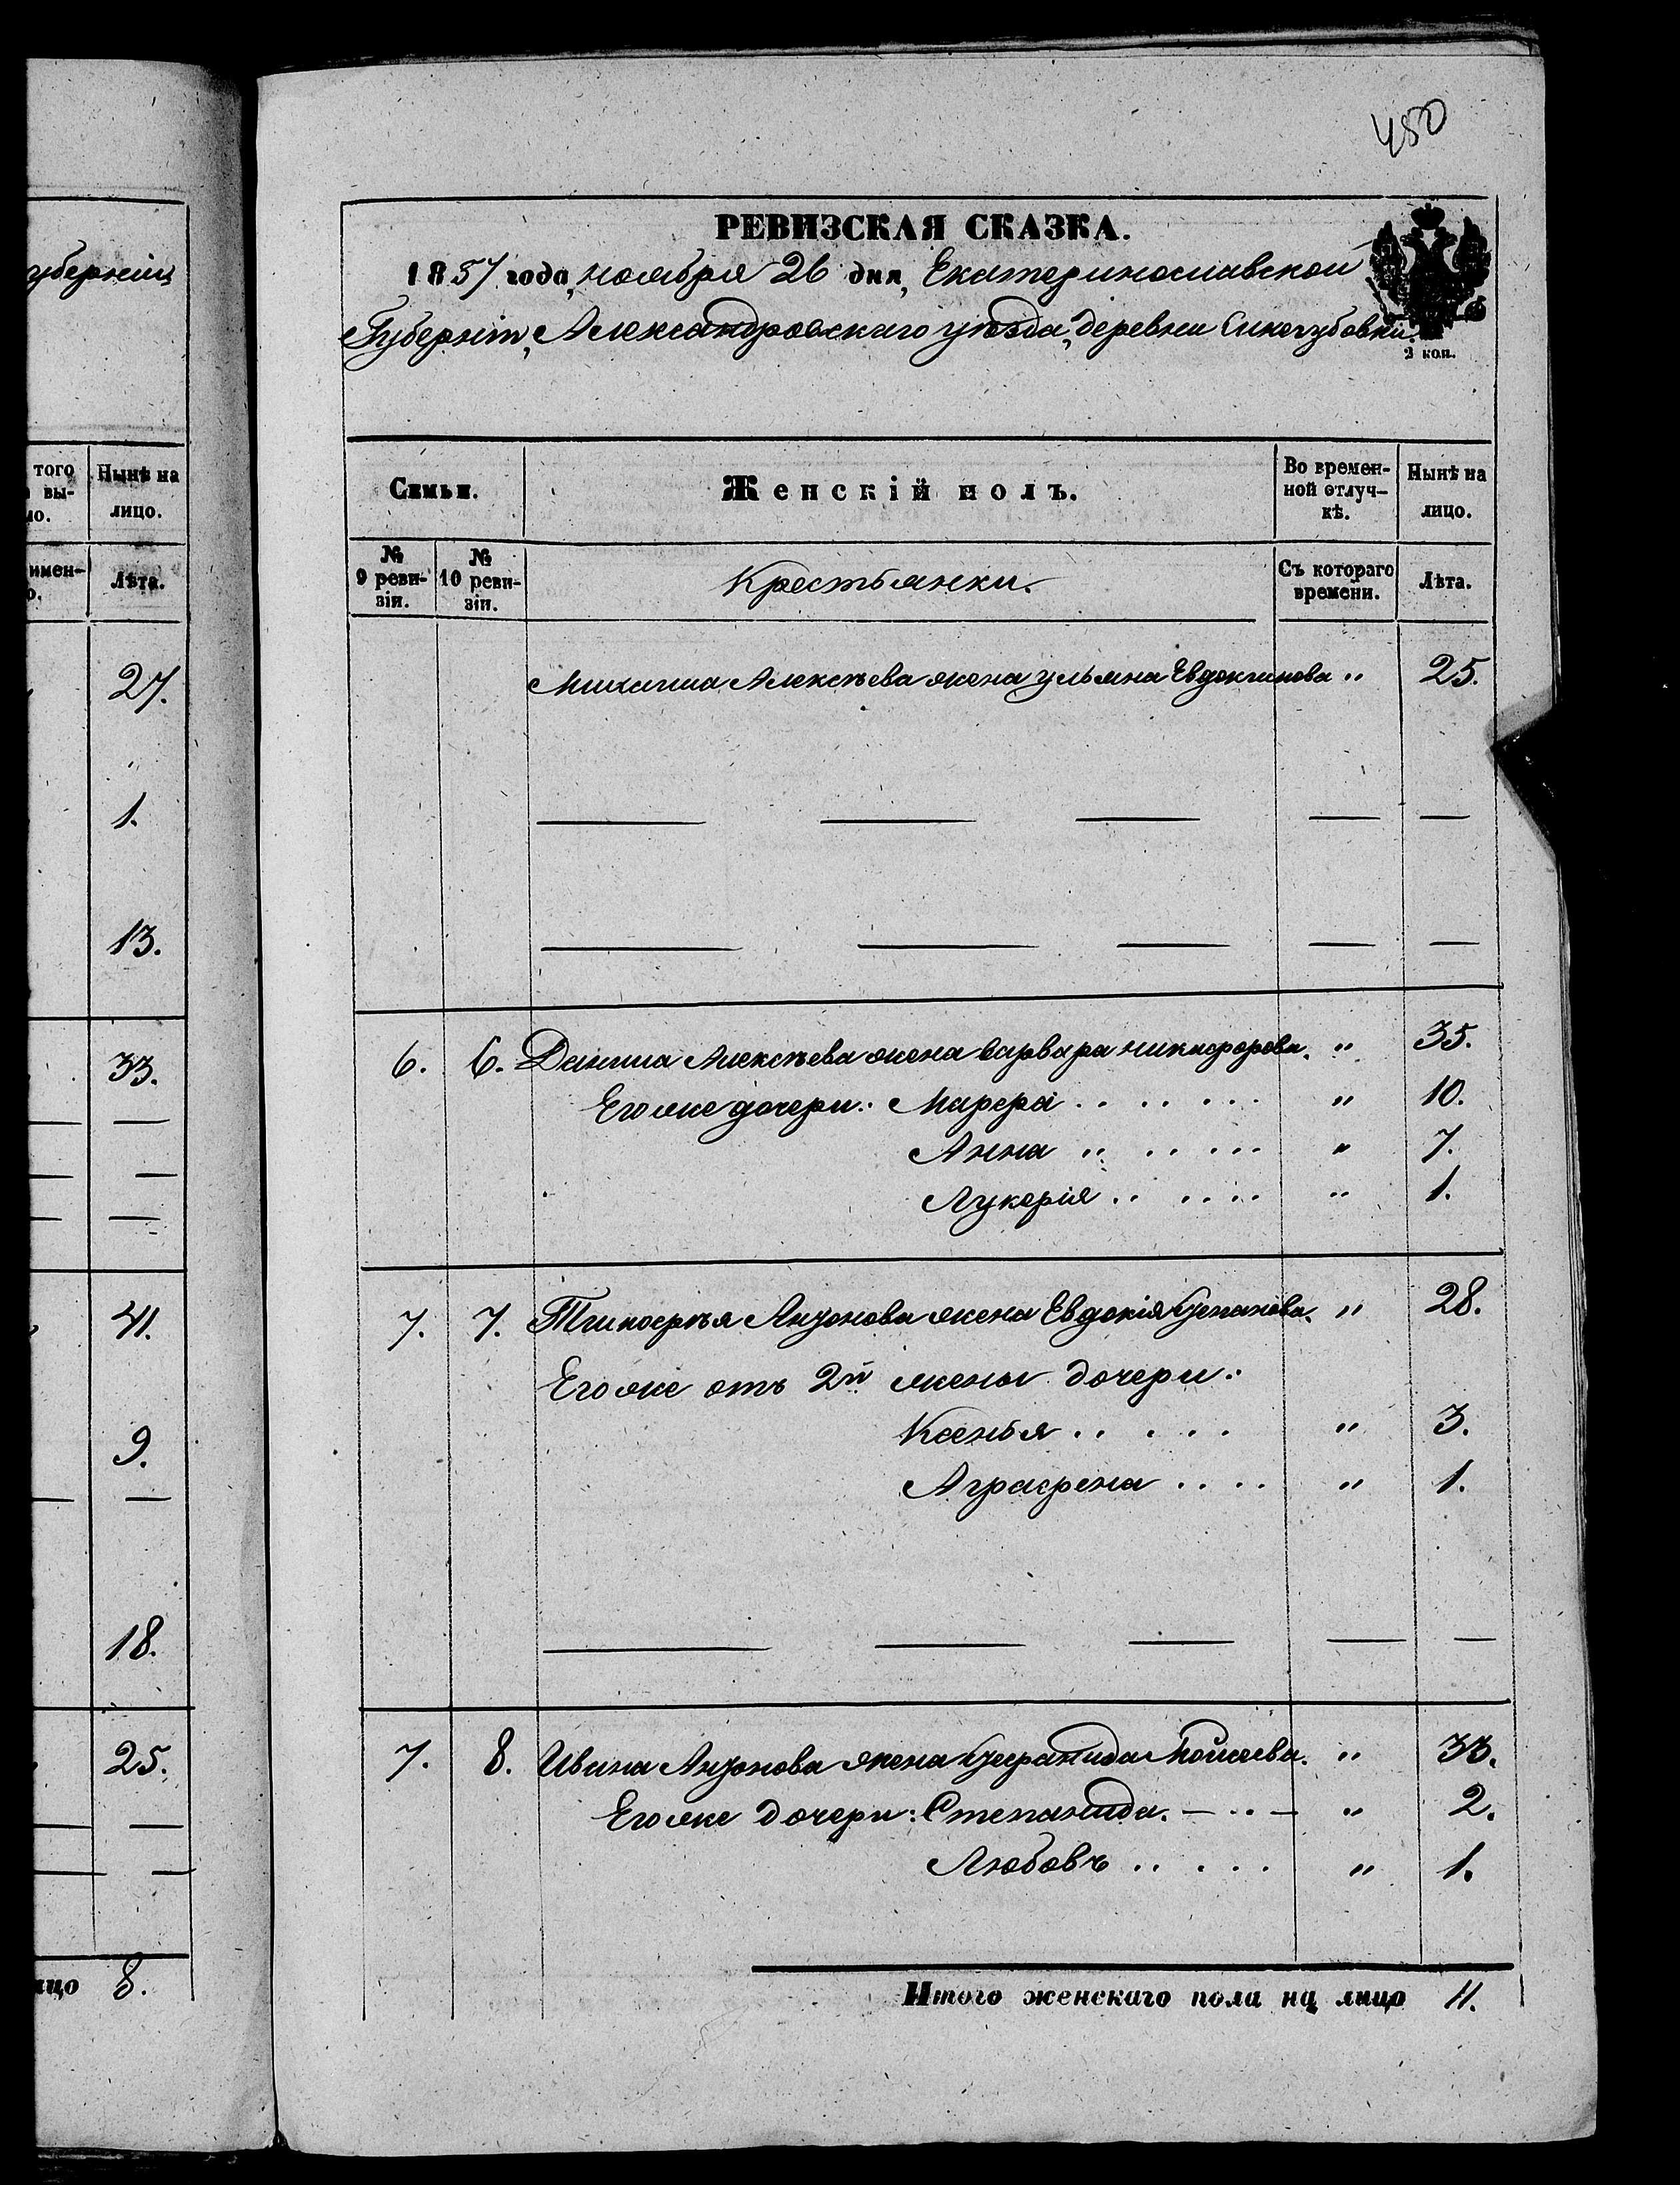 450
губерніи
того
вы-
Нынѣ на
лицо.
имен-
Лѣта.
27.
1.
13.
33.
41.
9.
18.
25.
лицо 8.
РЕВИЗСКАЯ СКАЗКА.
1857 года, ноября 26 дня, Екатеринославской
Губерніи, Александровскаго уѣзда, деревни
2 коп.
Семьи.
Женскій полъ.
Во времен-
ной отлуч-
кѣ.
Нынѣ на
лицо.
№
9 реви-
зіи.
№
10 реви-
зіи.
Крестьянки.
Съ котораго
времени.
Лѣта.
Михаила Алексѣева жена Ульяна Евдокимова " 25.
6. 6. Данила Алексѣева жена Варвара Никифорова. " 35.
Его же дочери: Марфа . . . . . . . " 10.
Анна . . . . . . . " 7.
Лукерія . . . . . . " 1.
7. 7. Тимофѣя Антонова жена Евдокія Степанова. " 28.
Его же отъ 2й жены дочери:
Ксенья . . . . . " 3.
Аграфена . . . . " 1.
7. 8. Ивана Антонова жена Моисеева. " 33.
Его же дочери: Степанида. — . . — " 2.
Любовь . . . . . " 1.
Итого женскаго пола на лицо 11.